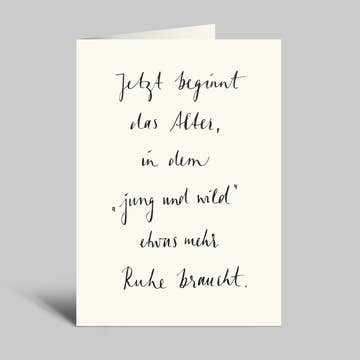 Jetzt beginnt
das Alter,
in dem
„jung und wild"
etwas mehr
Ruhe braucht.